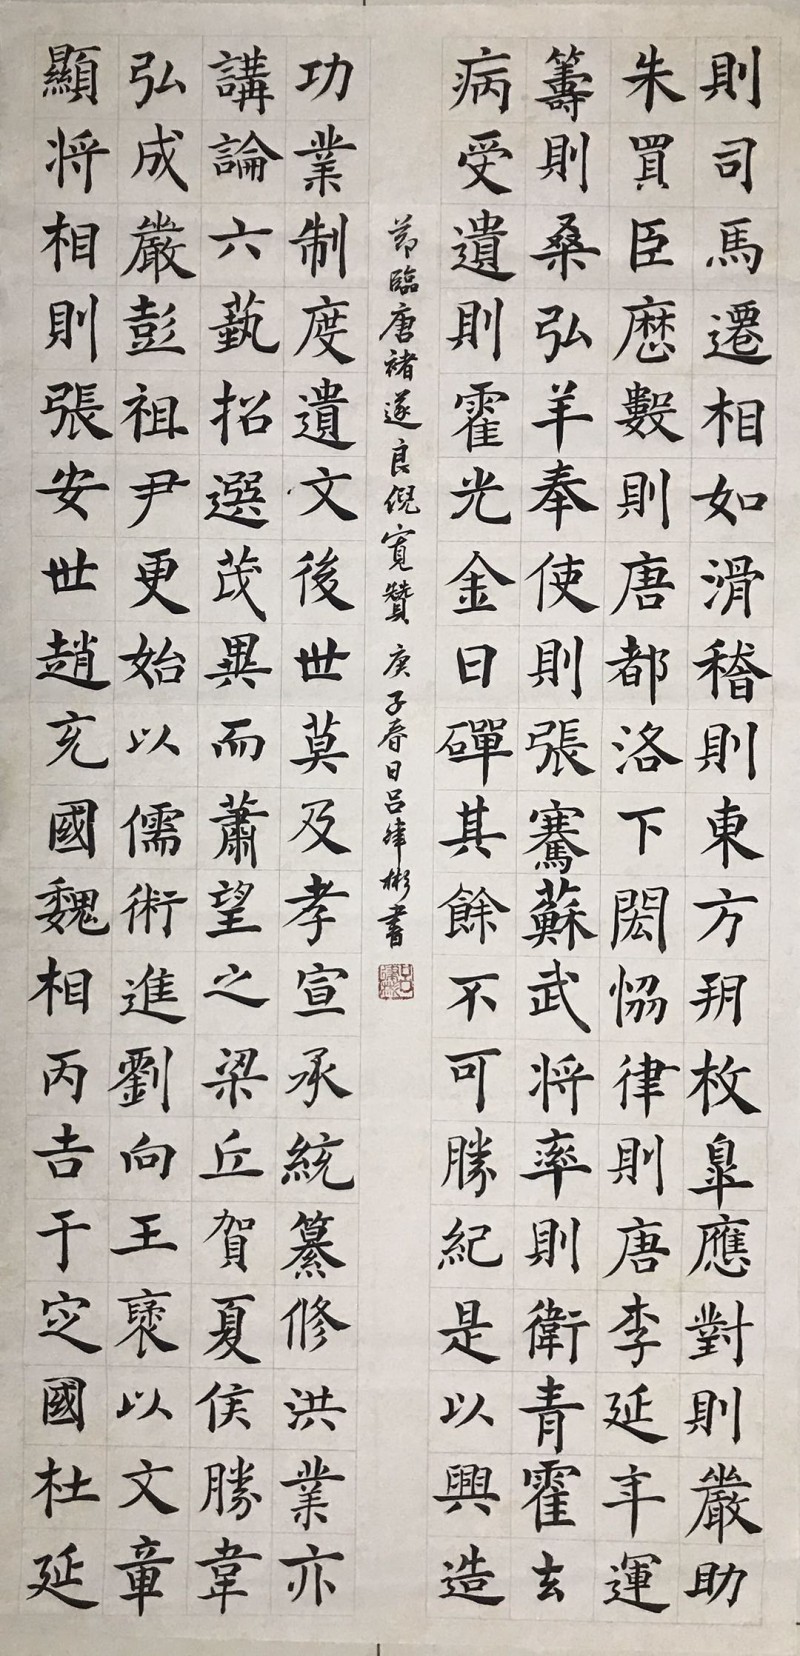 則司馬遷相如滑稽則東方朔枚皐應對則嚴助
朱買臣歷數則唐都洛下閎恊律則唐李延年運
籌則桑弘羊奉使則張騫蘇武将率則衛青霍去
病受遺則霍光金日磾其餘不可勝紀是以興造
節臨唐褚遂良倪寬贊 庚子春日呂彬書
功業制度遺文後世莫及孝宣承統纂修洪業亦
講論六藝招選茂異而蕭望之梁丘賀夏侯勝韋
弘成嚴彭祖尹更始以儒術進劉向王襃以文章
顯将相則張安世趙充國魏相丙吉于定國杜延